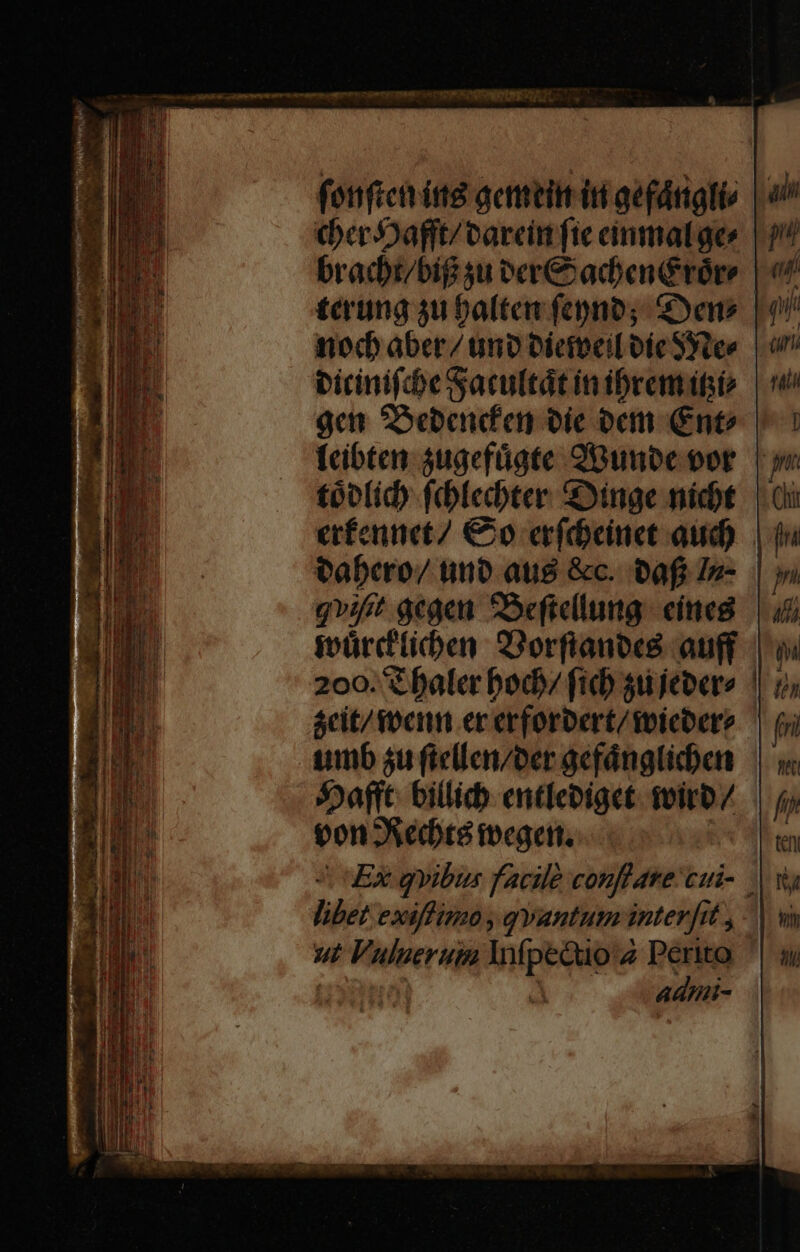 ſonſten ins gemein in gefaͤngli⸗
cher Hafft/ darein ſie einmal ge⸗
bracht/ biß zu der Sachen Eroͤr⸗
terung zu halten ſeynd; Den⸗
noch aber/ und dieweil die Me⸗
diciniſche Facultaͤt in ihrem itzi⸗
gen Bedencken die dem Ent⸗
leibten zugefuͤgte Wunde vor
toͤdlich ſchlechter Dinge nicht
erkennet/ So erſcheinet auch
dahero/ und aus &c. daß In-
qviſit gegen Beſtellung eines
wuͤrcklichen Vorſtandes auff
200. Thaler hoch/ ſich zu jeder⸗
zeit/ wenn er erfordert/ wieder⸗
umb zu ſtellen/ der gefaͤnglichen
Hafft billich entlediget wird/
von Rechts wegen.
Ex qvibus facilè conſtare cui-
libet exiſtimo, qvantum interſit,
ut Vulnerum Inſpectio à Perito
admi-